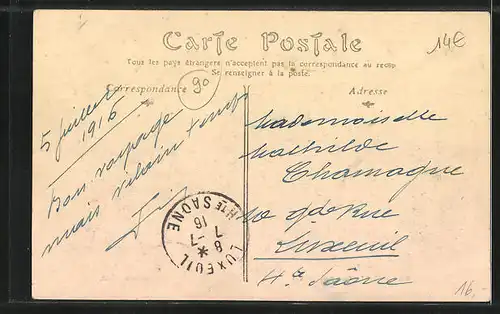 Carte Postale
14€
Tous les pays étrangers n'acceptent pas la correspondance au recto
Se renseigner à la poste.
Correspondance
90
Adresse
5 Juillet
1916
Bon voyage
mais vilain temps
Mademoiselle
Mathilde
Chamagne
10 gde Rue
Luxeuil
Hte Saône
LUXEUIL
HTE SAÔNE
8 -7
16
16.-